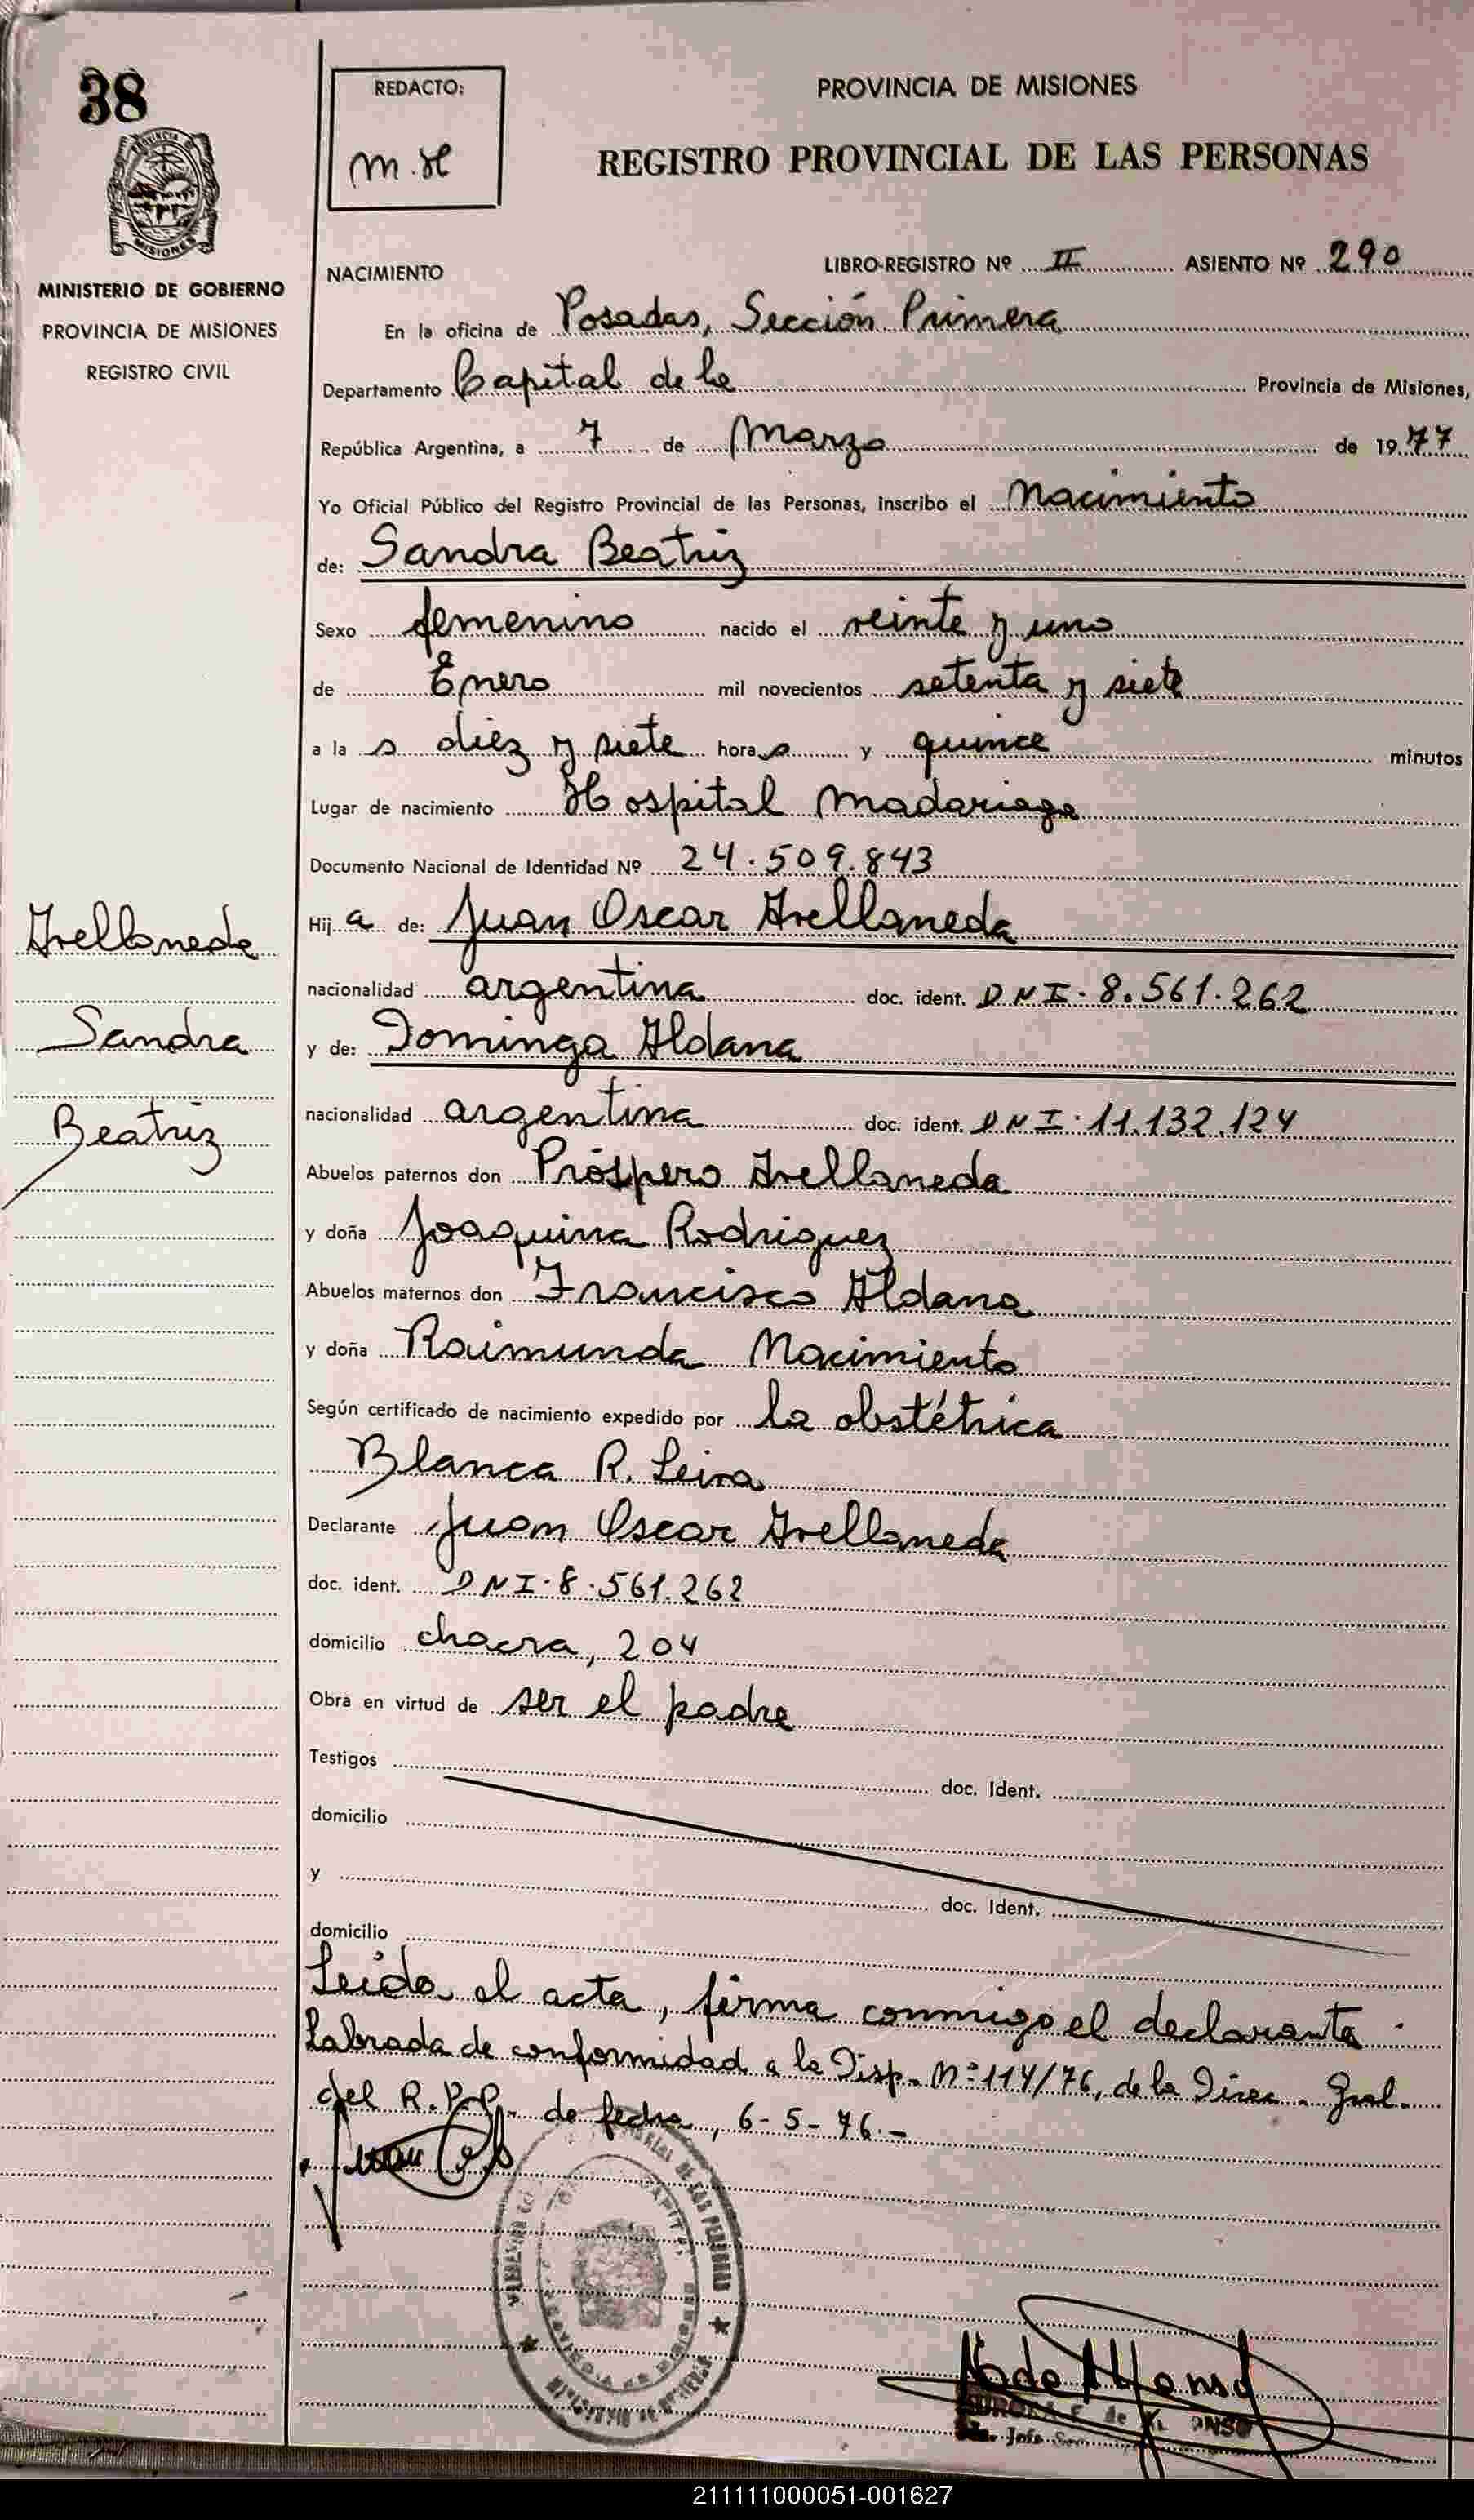 38
REDACTO:
M.H
PROVINCIA DE MISIONES
REGISTRO PROVINCIAL DE LAS PERSONAS
PROVINCIA DE
MISIONES
MINISTERIO DE GOBIERNO
PROVINCIA DE MISIONES
REGISTRO CIVIL
NACIMIENTO
LIBRO-REGISTRO Nº II ASIENTO Nº 290
En la oficina de Posadas, Sección Primera
Departamento Capital de la Provincia de Misiones,
República Argentina, a 7 de Marzo de 1977
Yo Oficial Público del Registro Provincial de las Personas, inscribo el Nacimiento
de: Sandra Beatriz
Sexo femenino nacido el veinte y uno
de Enero mil novecientos setenta y siete
a la s diez y siete horas y quince minutos
Lugar de nacimiento Hospital Madariaga
Documento Nacional de Identidad Nº 24.509.843
Hija de: Juan Oscar Avellaneda
nacionalidad argentina doc. ident. DNI. 8.561.262
y de: Dominga Aldana
nacionalidad argentina doc. ident. DNI. 11.132.124
Abuelos paternos don Próspero Avellaneda
y doña Joaquina Rodriguez
Abuelos maternos don Francisco Aldana
y doña Raimunda Nacimiento
Según certificado de nacimiento expedido por la obstétrica
Blanca R. Leiva
Declarante Juan Oscar Avellaneda
doc. ident. DNI. 8.561.262
domicilio chacra, 204
Obra en virtud de ser el padre
Testigos doc. Ident.
domicilio
y doc. Ident.
domicilio
Leido el acta, firma conmigo el declarante.
Labrada de conformidad a la Disp. Nº 114/76, de la Direc. Gral.
del R.P.P. de fecha, 6-5-76.-
Avellaneda
Sandra
Beatriz
Juan
DE LAS PERSONAS
PROVINCIA DE MISIONES
de Alfonso
211111000051-001627